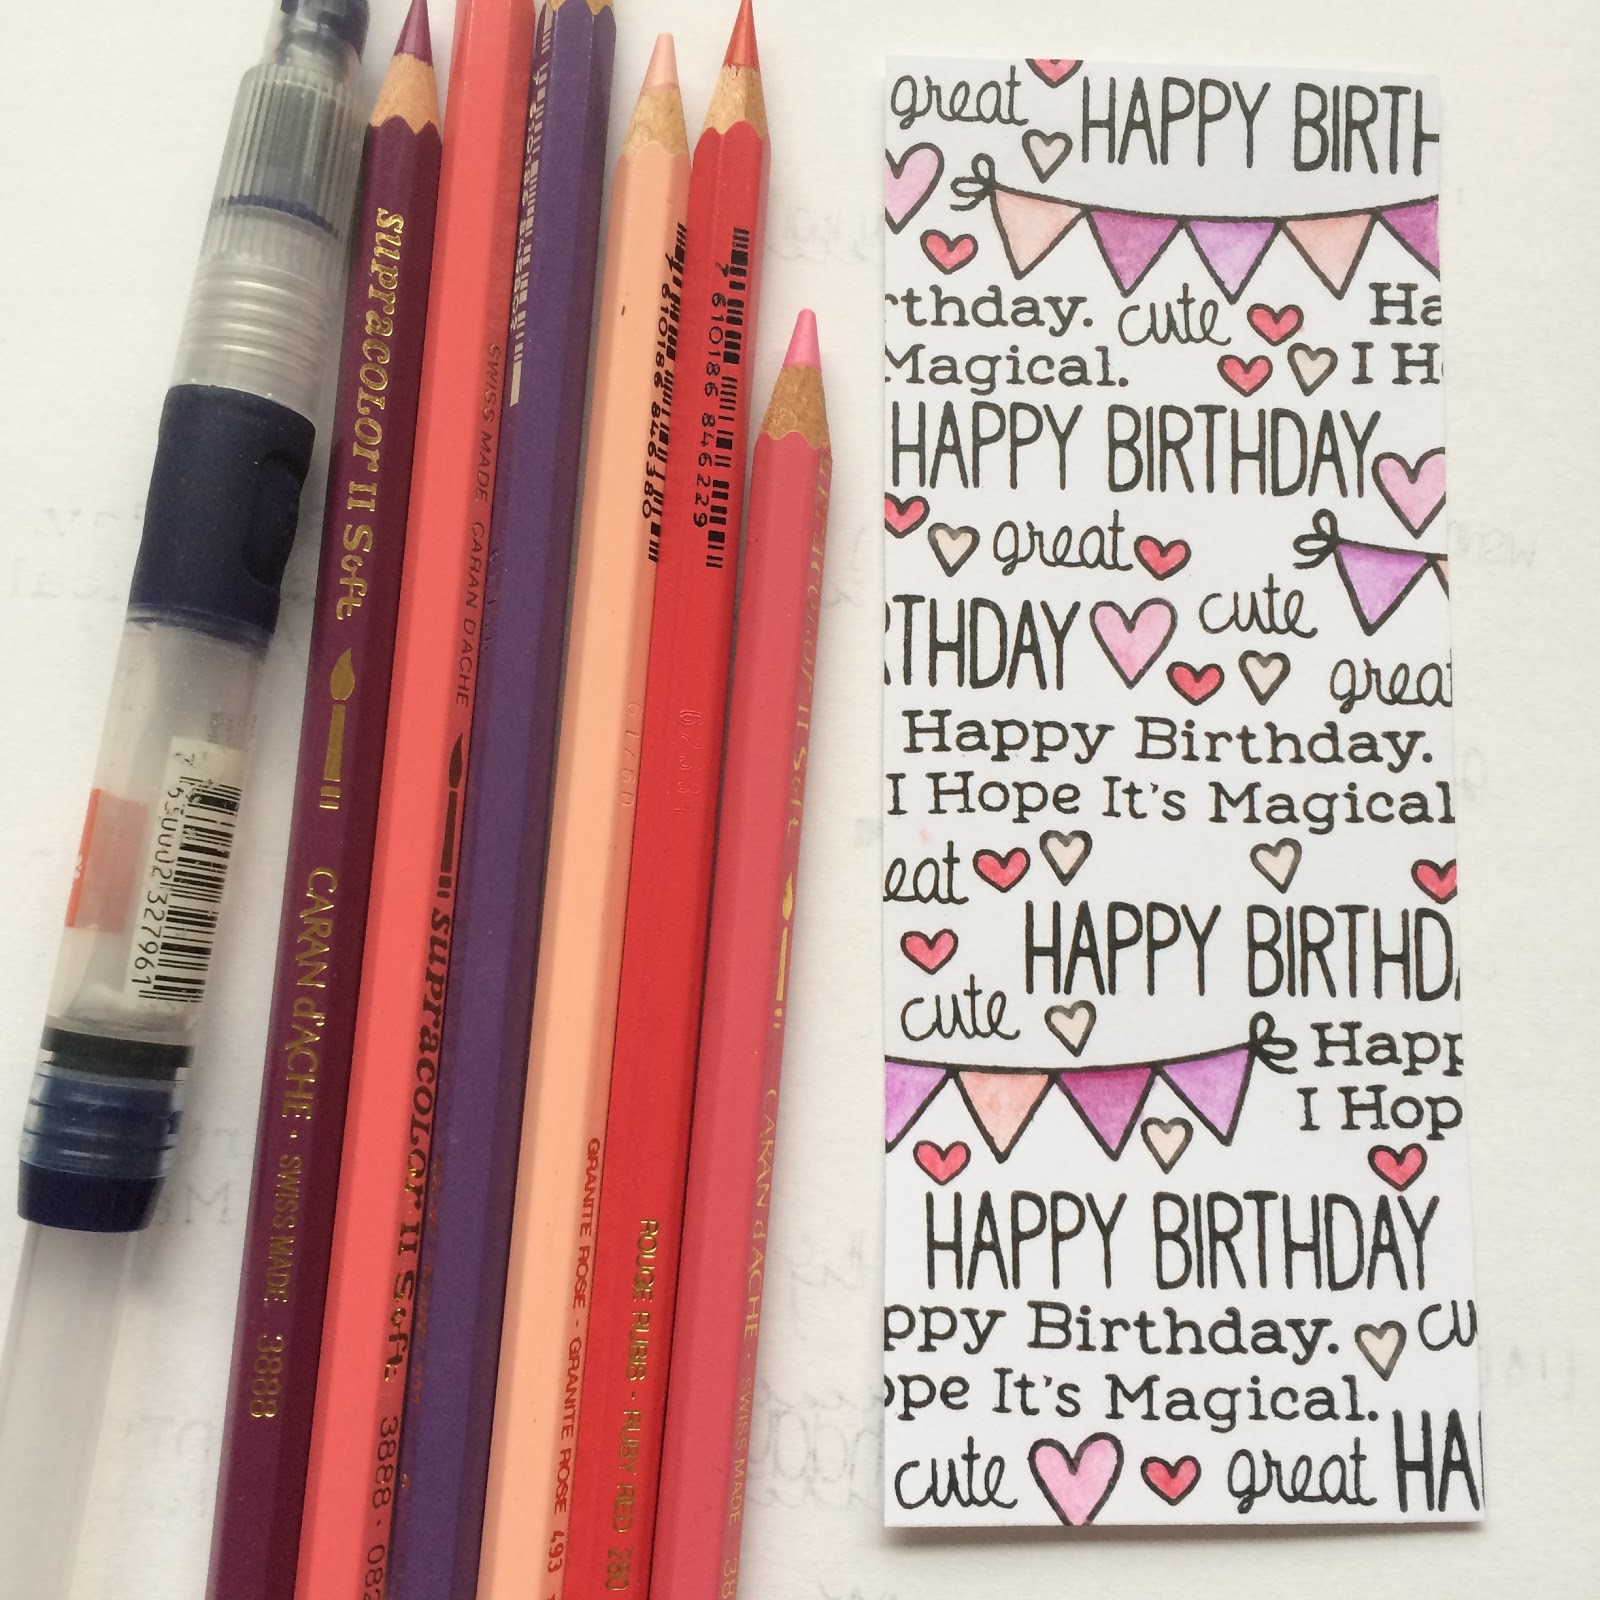 supracolor II Soft
CARAN d'ACHE · SWISS MADE 3888
SWISS MADE CARAN D'ACHE
supracolor II Soft 3888 · 082
610186 846380
61760
GRANITE ROSE · GRANITE ROSE 493
610186 846229
ROUGE RUBIS · RUBY RED 280
supracolor II Soft
CARAN d'ACHE · SWISS MADE 38
great HAPPY BIRTH
rthday. cute Ha
Magical. I H
HAPPY BIRTHDAY
great
RTHDAY cute
great
Happy Birthday.
I Hope It's Magical
eat
HAPPY BIRTHD
cute
Happ
I Hop
HAPPY BIRTHDAY
ppy Birthday. cu
ope It's Magical.
cute great HA